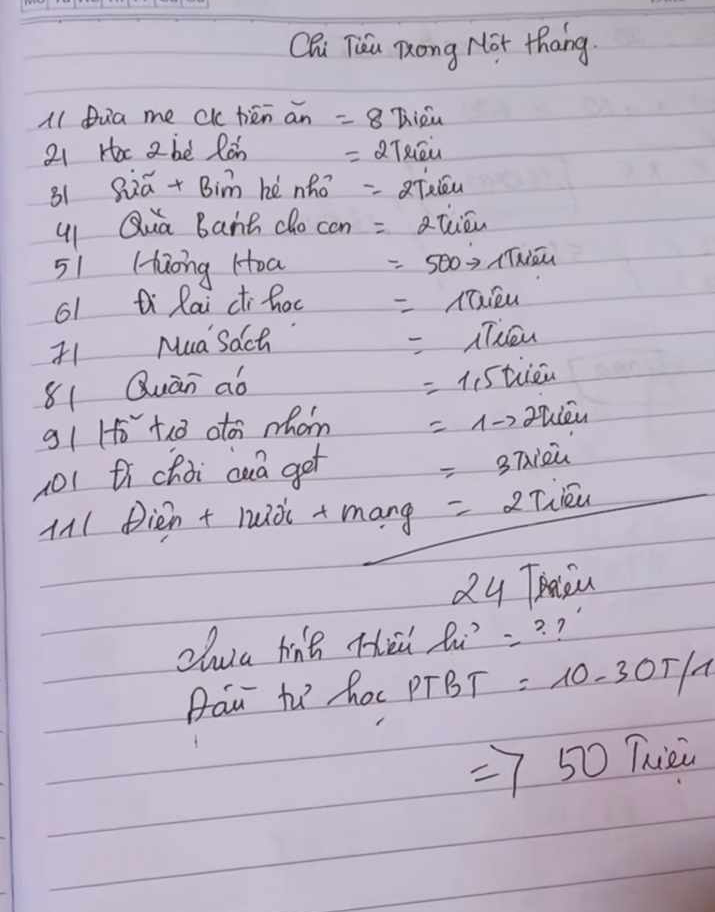 Chi Tiêu Trong Một tháng.
1/ Đưa mẹ ck tiền ăn = 8 Triệu
2/ Học 2 bé lớn = 2 Triệu
3/ Sữa + Bỉm bé nhỏ = 2 Triệu
4/ Quà Bánh cho con = 2 triệu
5/ Hương Hoa = 500 → 1 Triệu
6/ Đi lại đi học = 1 Triệu
7/ Mua Sách = 1 Triệu
8/ Quần áo = 1,5 triệu
9/ Hỗ trợ nhóm = 1 → 2 triệu
10/ Đi chơi quà = 3 Triệu
11/ Điện + nước + mạng = 2 Triệu
24 Triệu
chưa tính Hiếu hỉ = ??
Đầu tư học PTBT = 10 - 30T/1
=> 50 Triệu